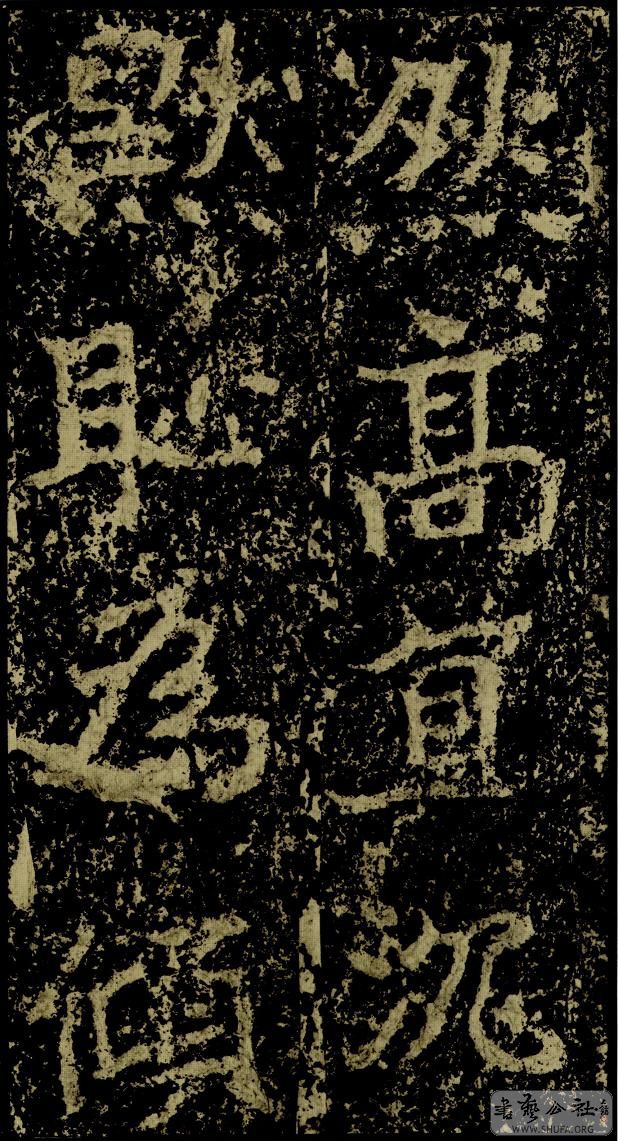 然高直沉
默恥為傾
書藝公社
WWW.SHUFA.ORG